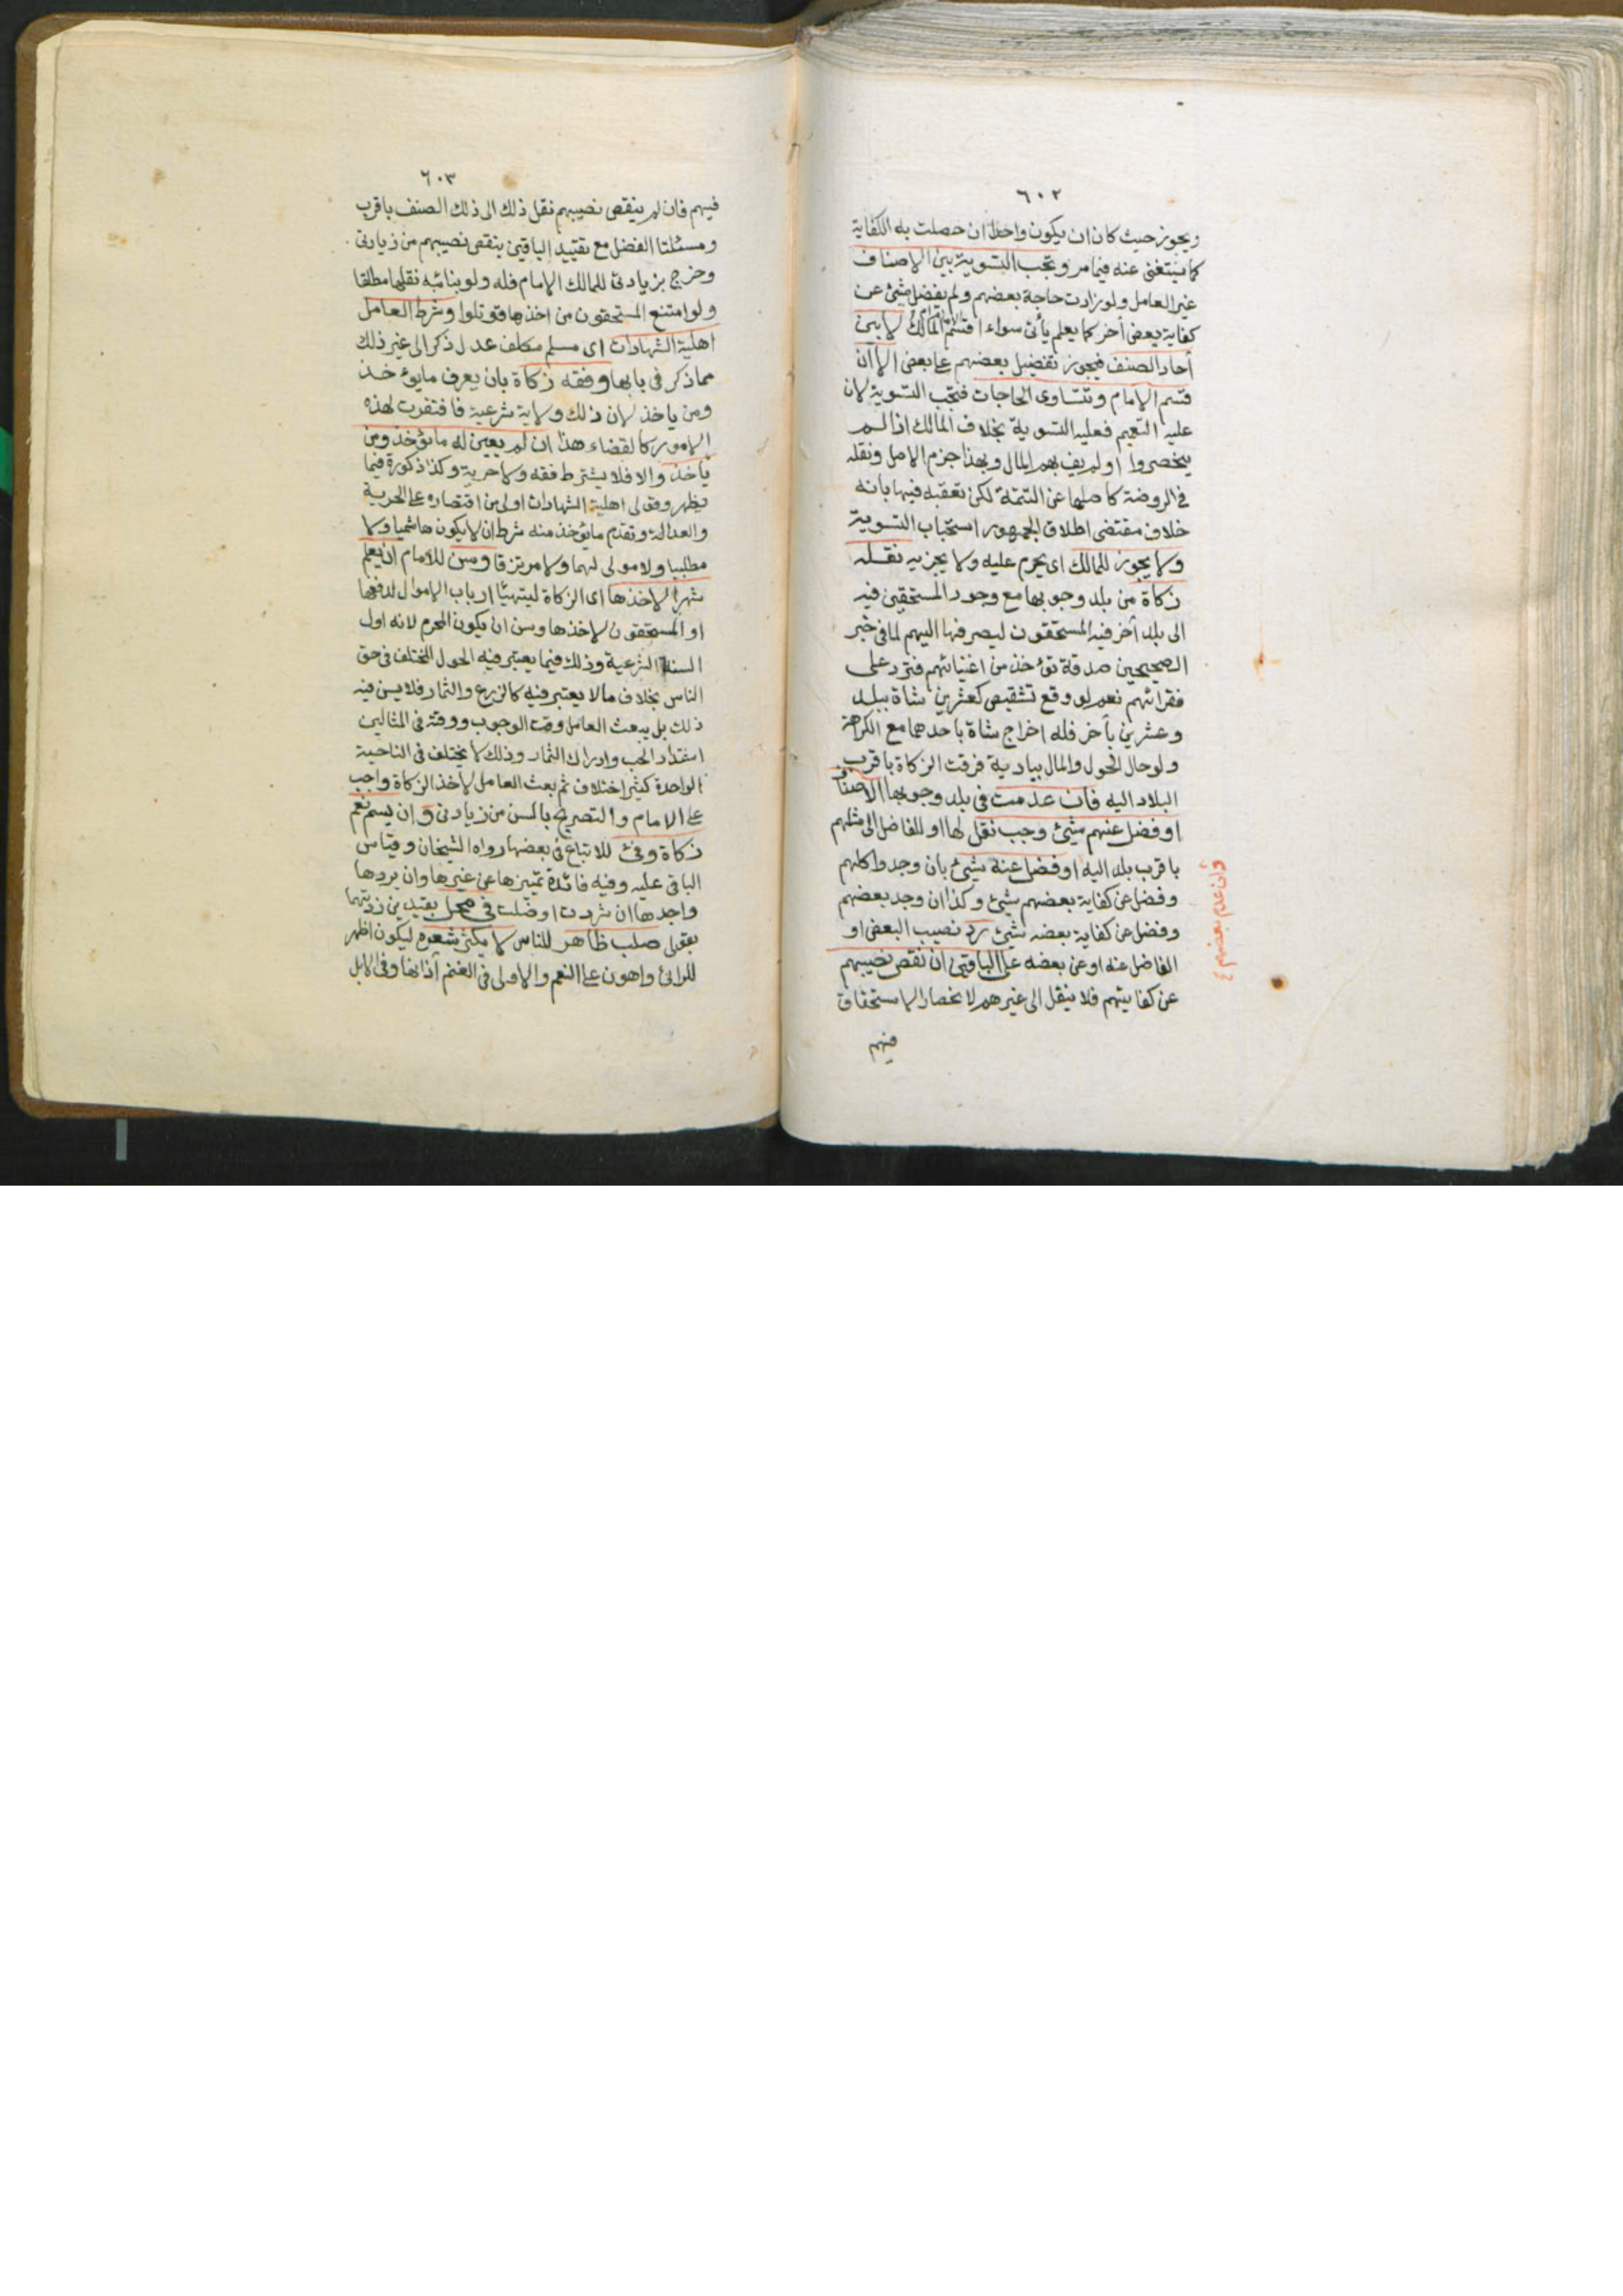 ٦٠٢
ويجوز حيث كان ان يكون واحدا ان حصلت به الكفاية
كما يستغنى عنه فيما مر وتجب التسوية بين الاصناف
غير العامل ولو زادت حاجة بعضهم ولم يفضل شيئ عن
كفاية بعض أخر كما يعلم يأتى سواء اقسم الامام او المالك لا بين
أحاد الصنف فيجوز تفضيل بعضهم على بعض الا ان
قسم الامام وتتساوى الحاجات فتجب التسوية لان
عليه التعميم فعليه التسوية بخلاف المالك اذا لم
ينحصروا او لم يف بهم المال وبهذا جزم الاصل ونقله
في الروضة كاصلها عن التتمة لكن تعقبه فيها بانه
خلاف مقتضى اطلاق الجمهور استحباب التسوية
ولا يجوز للمالك اى يحرم عليه ولا يجزيه نقله
زكاة من بلد وجوبها مع وجود المستحقين فيه
الى بلد أخر فيه المستحقون ليصرفها اليهم لما في خبر
الصحيحين صدقة تؤخذ من اغنيائهم فترد على
فقرائهم نعم لو وقع تشقيص كعشرين شاة ببلد
وعشرين بأخر فله اخراج شاة باحدهما مع الكراهة
ولو حال الحول والمال ببادية فرقت الزكاة باقرب
البلاد اليه فان عدمت في بلد وجوبها الاصناف
او فضل عنهم شيئ وجب نقل لها او للفاضل الى مثلهم
باقرب بلد اليه او فضل عنه شيئ بان وجدوا كلهم
وفضل عن كفاية بعضهم شيئ وكذا ان وجد بعضهم
وفضل عن كفاية بعضه شيئ رد نصيب البعض او
الفاضل عنه او عن بعضه على الباقين ان نقص نصيبهم
عن كفايتهم فلا ينقل الى غيرهم لانحصار الاستحقاق
فيهم
وان عدم بعضهم
٦٠٣
فيهم فان لم ينقص نصيبهم نقل ذلك الى ذلك الصنف باقرب
ومسئلتا الفضل مع تقييد الباقين بنقص نصيبهم من زيادتى
وخرج بزيادتى للمالك الامام فله ولو بنائبه نقلها مطلقا
ولو امتنع المستحقون من اخذها قوتلوا وشرط العامل
اهلية الشهادات اى مسلم مكلف عدل ذكر الى غير ذلك
مما ذكر في بابها وفقه زكاة بان يعرف ما يؤخذ
ومن ياخذ لان ذلك ولاية شرعية فافتقرت لهذه
الامور كالقضاء هذا ان لم يعين له ما يؤخذ ومن
يأخذ والا فلا يشترط فقه ولا حرية وكذا ذكورة فيما
يظهر وقولى اهلية الشهادات اولى من اقتصاره على الحرية
والعدالة وتقدم ما يؤخذ منه شرط ان لا يكون هاشميا ولا
مطلبيا ولا مولى لهما ولا مرتزقا وسن للامام ان يعلم
شهرا لاخذها اى الزكاة ليتهيأ ارباب الاموال لدفعها
او المستحقون لاخذها وسن ان يكون المحرم لانه اول
السنة الشرعية وذلك فيما يعتبر فيه الحول المختلف في حق
الناس بخلاف ما لا يعتبر فيه كالزرع والثمار فلا يسن فيه
ذلك بل يبعث العامل وقت الوجوب ووقته في المثالين
اشتداد الحب وادراك الثمار وذلك لا يختلف في الناحية
الواحدة كثير اختلاف ثم بعث العامل لاخذ الزكاة واجب
على الامام والتصريح بالسن من زيادتى وان يسم نعم
زكاة وفئ للاتباع في بعضها رواه الشيخان وقياس
الباقى عليه وفيه فائدة تميزها عن غيرها وان يردها
واجدها ان شردت او ضلت في محل بقيدين زدتهما
بقولى صلب ظاهر للناس لا يكثر شعره ليكون اظهر
للرائى واهون على النعم والاولى في الغنم آذانها وفي الابل